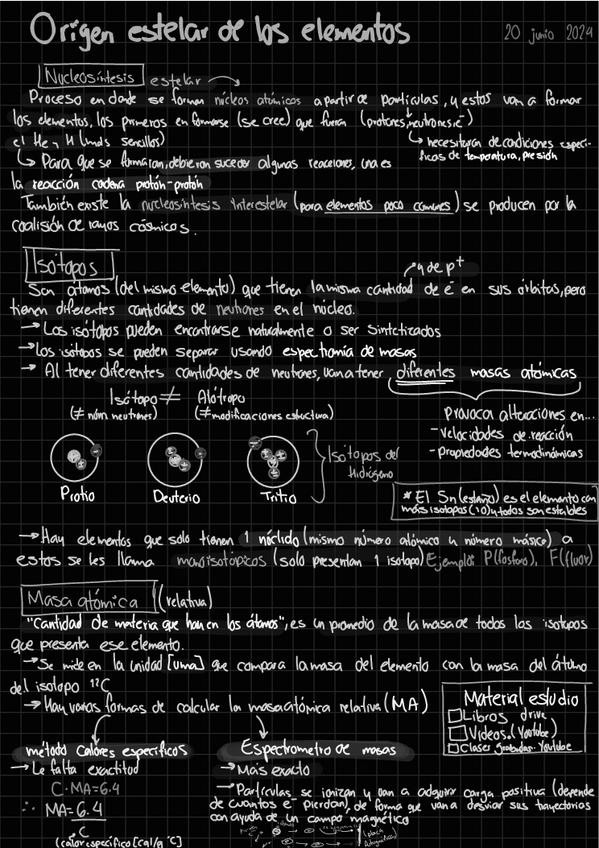 Origen estelar de los elementos
20 junio 2024
Nucleosíntesis estelar
Proceso en donde se forman núcleos atómicos a partir de partículas, y estos van a formar
los elementos, los primeros en formarse (se cree) que fueron (protones, neutrones, e-)
el He y H (más sencillos)
necesitaron de condiciones especí-
ficas de temperatura, presión
Para que se formaran, debieron suceder algunas reacciones, una es
la reacción cadena protón-protón
También existe la nucleosíntesis interestelar (para elementos poco comunes) se producen por la
coalisión de rayos cósmicos.
Isótopos
y de p+
Son átomos (del mismo elemento) que tienen la misma cantidad de e- en sus órbitas, pero
tienen diferentes cantidades de neutrones en el núcleo.
→ Los isótopos pueden encontrarse naturalmente o ser sintetizados
→ los isótopos se pueden separar usando espectrómía de masas
→ Al tener diferentes cantidades de neutrones, van a tener diferentes masas atómicas
Isótopo ≠ Alótropo
(≠ núm. neutrones) (≠ modificaciones estuctura)
Provoca alteraciones en...
- Velocidades de reacción
- Propiedades termodinámicas
Isótopos del
Hidrógeno
Protio Deuterio Tritio
* El Sn (estaño) es el elemento con
más isotopos (10) y todos son estables
→ Hay elementos que solo tienen 1 núclido (mismo número atómico y número másico) a
estos se les llama monoisotópicos (solo presentan 1 isotopo) Ejemplos P(fósforo), F(fluor)
Masa atómica (relativa)
"Cantidad de materia que hay en los átomos", es un promedio de la masa de todos los isotopos
que presenta ese elemento.
→ Se mide en la unidad [uma] que compara la masa del elemento con la masa del átomo
del isotopo ¹²C
→ Hay varias formas de calcular la masa atómica relativa (MA)
Material estudio
Libros drive
Videos (Youtube)
Clases grabadas Youtube
método calores específicos
→ Le falta exactitud
C · MA = 6.4
∴ MA = 6.4
C
(calor específico [cal/g °C]
Espectrometro de masas
→ Más exacto
→ Partículas se ionizan y van a adquirir carga positiva (depende
de cuantos e- pierdan), de forma que van a desviar sus trayectorias
con ayuda de un campo magnético